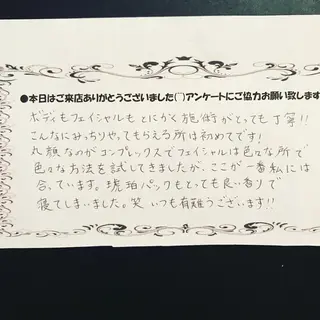 ●本日はご来店ありがとうございました(^^)アンケートにご協力お願い致します
ボディもフェイシャルもとにかく施術がとっても丁寧!!
こんなにみっちりやってもらえる所は初めてです!
丸顔なのがコンプレックスでフェイシャルは色々な所で
色々な方法を試してきましたが、ここが一番私には
合っています。琥珀パックもとっても良い香りで
寝てしまいました。笑 いつも有難うございます!!